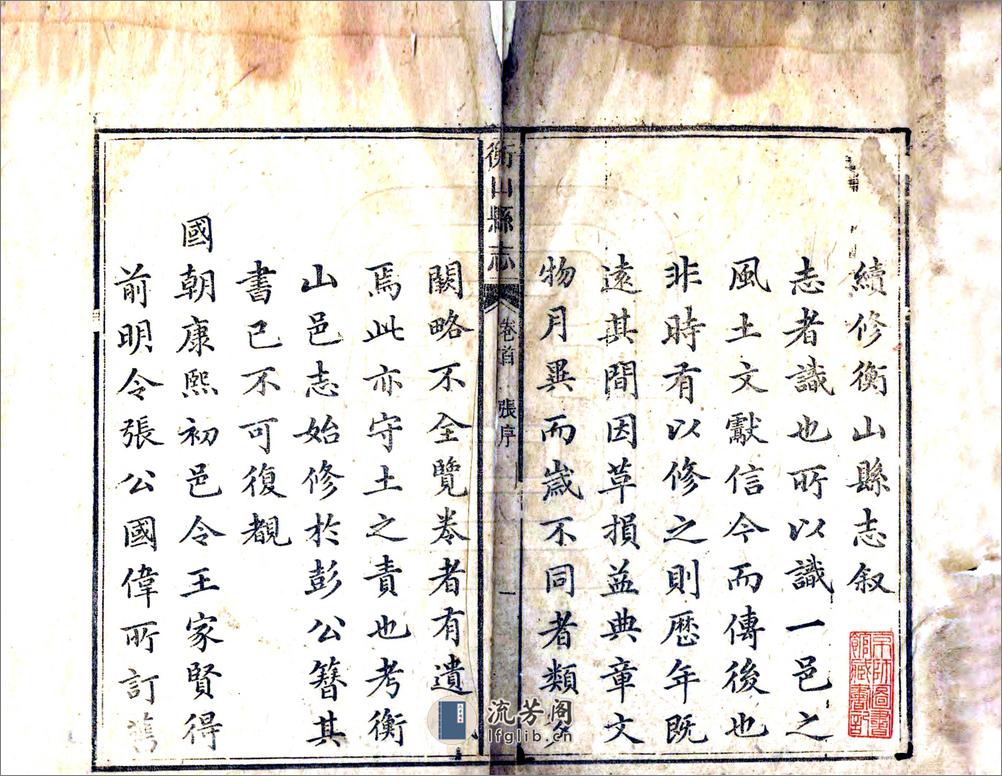 續修衡山縣志叙
志者識也所以識一邑之
風土文獻信今而傳後也
非時有以修之則歷年既
遠其間因革損益典章文
物月異而歲不同者類多
衡山縣志
卷首
張序
一
闕略不全覽者有遺
焉此亦守土之責也考衡
山邑志始修於彭公簪其
書已不可復覩
國朝康熙初邑令王家賢得
前明令張公國偉所訂舊
京師圖書
館藏書記
流芳阁
lfglib.cn